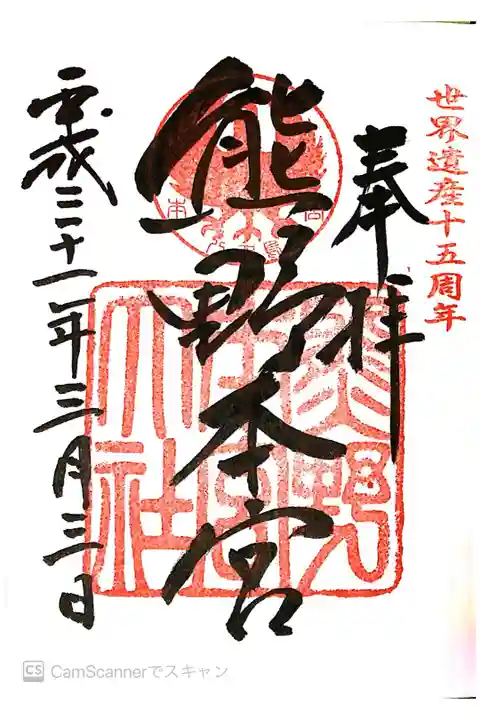 世界遺産十五周年
奉拝
熊野本宮
熊野本宮大社
平成三十一年三月三日
CS CamScannerでスキャン